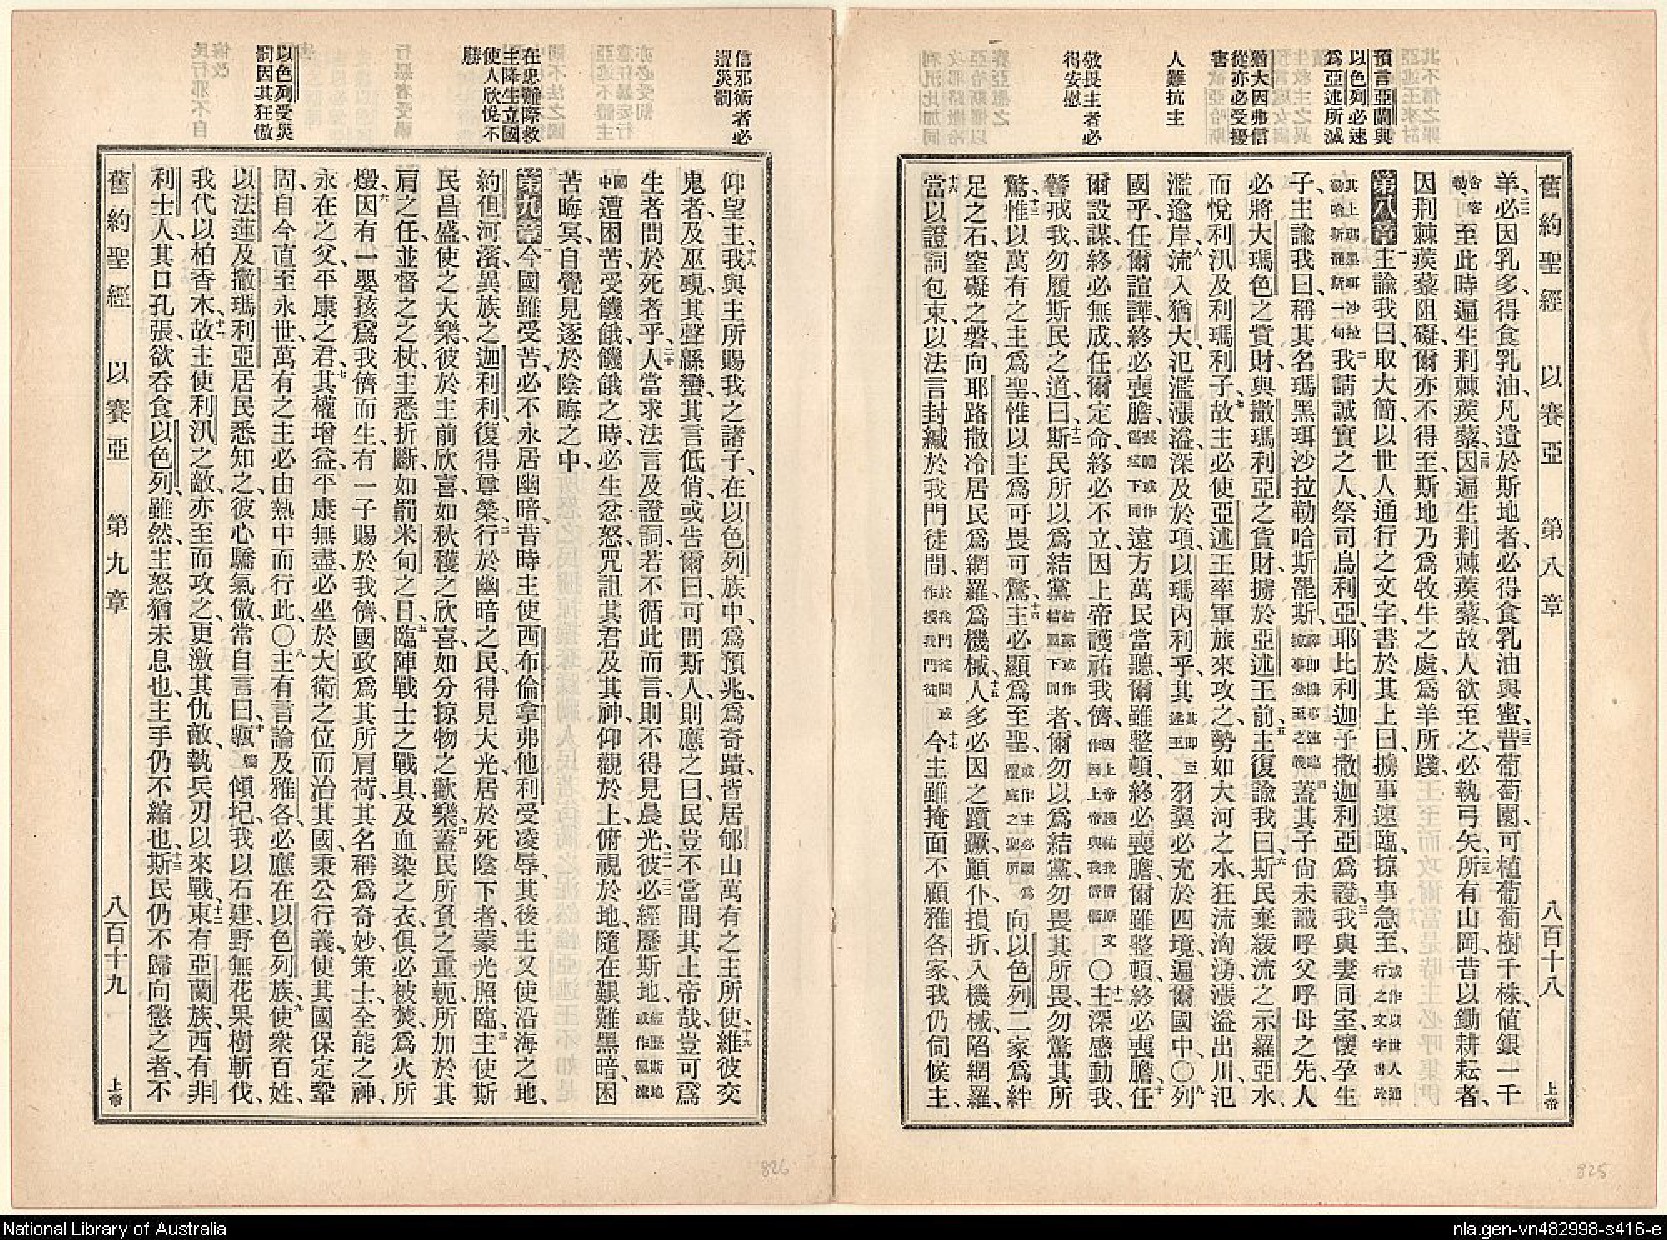 預言亞蘭與
以色列必速
爲亞述所滅
猶大因弗信
從亦必受擾
害
人難抗主
敬畏主者必
得安慰
舊約聖經 以賽亞 第八章 八百十八 上帝
羊、必因乳多、得食乳油、凡遺於斯地者、必得食乳油與蜜、昔葡萄園、可植葡萄樹千株、值銀一千
至此時遍生荆棘蒺藜、因遍生荆棘蒺藜、故人欲至之、必執弓矢、所有山岡、昔以鋤耕耘者、
因荆棘蒺藜阻礙、爾亦不得至、斯地乃爲牧牛之處、爲羊所踐、
第八章 主諭我曰、取大簡、以世人通行之文字、書於其上曰、擄事速臨、掠事急至、
我請誠實之人、祭司烏利亞、耶比利迦子撒迦利亞爲證、我與妻同室、懷孕生
子、主諭我曰、稱其名瑪黑珥沙拉勒哈斯罷斯、蓋其子尚未識呼父呼母之先、人
必將大瑪色之貨財、與撒瑪利亞之貨財、擄於亞述王前、主復諭我曰、斯民棄緩流之示羅亞水、
而悅利汛及利瑪利子、故主必使亞述王率軍旅來攻之、勢如大河之水、狂流洶湧、漲溢出川、氾
濫逾岸、流入猶大、氾濫漲溢、深及於項、以瑪內利乎、其羽翼必充於四境、遍爾國中、〇列
國乎、任爾諠譁、終必喪膽、遠方萬民當聽、爾雖整頓、終必喪膽、爾雖整頓、終必喪膽、任
爾設謀、終必無成、任爾定命、終必不立、因上帝護祐我儕、〇主深感動我、
警戒我、勿履斯民之道、曰、斯民所以爲結黨者、爾勿以爲結黨、勿畏其所畏、勿驚其所
驚、惟以萬有之主爲聖、惟以主爲可畏可驚、主必顯爲至聖、向以色列二家、爲絆
足之石、窒礙之磐、向耶路撒冷居民、爲網羅、爲機檻、人多必因之躓蹶、顚仆損折、入機檻、陷網羅、
當以證詞包束、以法言封緘於我門徒間、今主雖掩面不顧雅各家、我仍伺候主、
信邪術者必
遭災罰
在患難際救
主降生立國
使人欣悅不
勝
以色列受災
罰因其狂傲
仰望主、我與主所賜我之諸子、在以色列族中、爲預兆、爲奇蹟、皆居郇山萬有之主所使、維彼交
鬼者、及巫覡、其聲緜蠻、其言低俏、或告爾曰、可問斯人、則應之曰、民豈不當問其上帝哉、豈可爲
生者問於死者乎、人當求法言及證詞、若不循此而言、則不得見晨光、彼必經歷斯地
遭困苦、受饑餓、饑餓之時、必生忿怒、咒詛其君及其神、仰觀於上、俯視於地、隨在艱難黑暗、困
苦晦冥、自覺見逐於陰晦之中、
第九章 今國雖受苦、必不永居幽暗、昔時主使西布倫拿弗他利受凌辱、其後主又使沿海之地、
約但河濱、異族之迦利利、復得尊榮、行於幽暗之民、得見大光、居於死陰下者、蒙光照臨、主使斯
民昌盛、使之大樂、彼於主前欣喜、如秋穫之欣喜、如分掠物之歡樂、蓋民所負之重軛、所加於其
肩之任、並督之之杖、主悉折斷、如罰米甸之日、臨陣戰士之戰具、及血染之衣、俱必被焚、爲火所
燬、因有一嬰孩爲我儕而生、有一子賜於我儕、國政爲其所肩荷、其名稱爲奇妙、策士、全能之神、
永在之父、平康之君、其權增益、平康無盡、必坐於大衛之位、而治其國、秉公行義、使其國保定鞏
固、自今直至永世、萬有之主必由熱中而行此、〇主有言論及雅各、必應在以色列族、使衆百姓、
以法蓮及撒瑪利亞居民悉知之、彼心驕氣傲、常自言曰、甎傾圮、我以石建、野無花果樹斬伐、
我代以柏香木、故主使利汛之敵、亦至而攻之、更激其仇敵、執兵刃以來戰、東有亞蘭族、西有非
利士人、其口孔張、欲吞食以色列、雖然、主怒猶未息也、主手仍不縮也、斯民仍不歸向懲之者、不
舊約聖經 以賽亞 第九章 八百十九 上帝
826
825
National Library of Australia
nla.gen-vn482998-s416-e